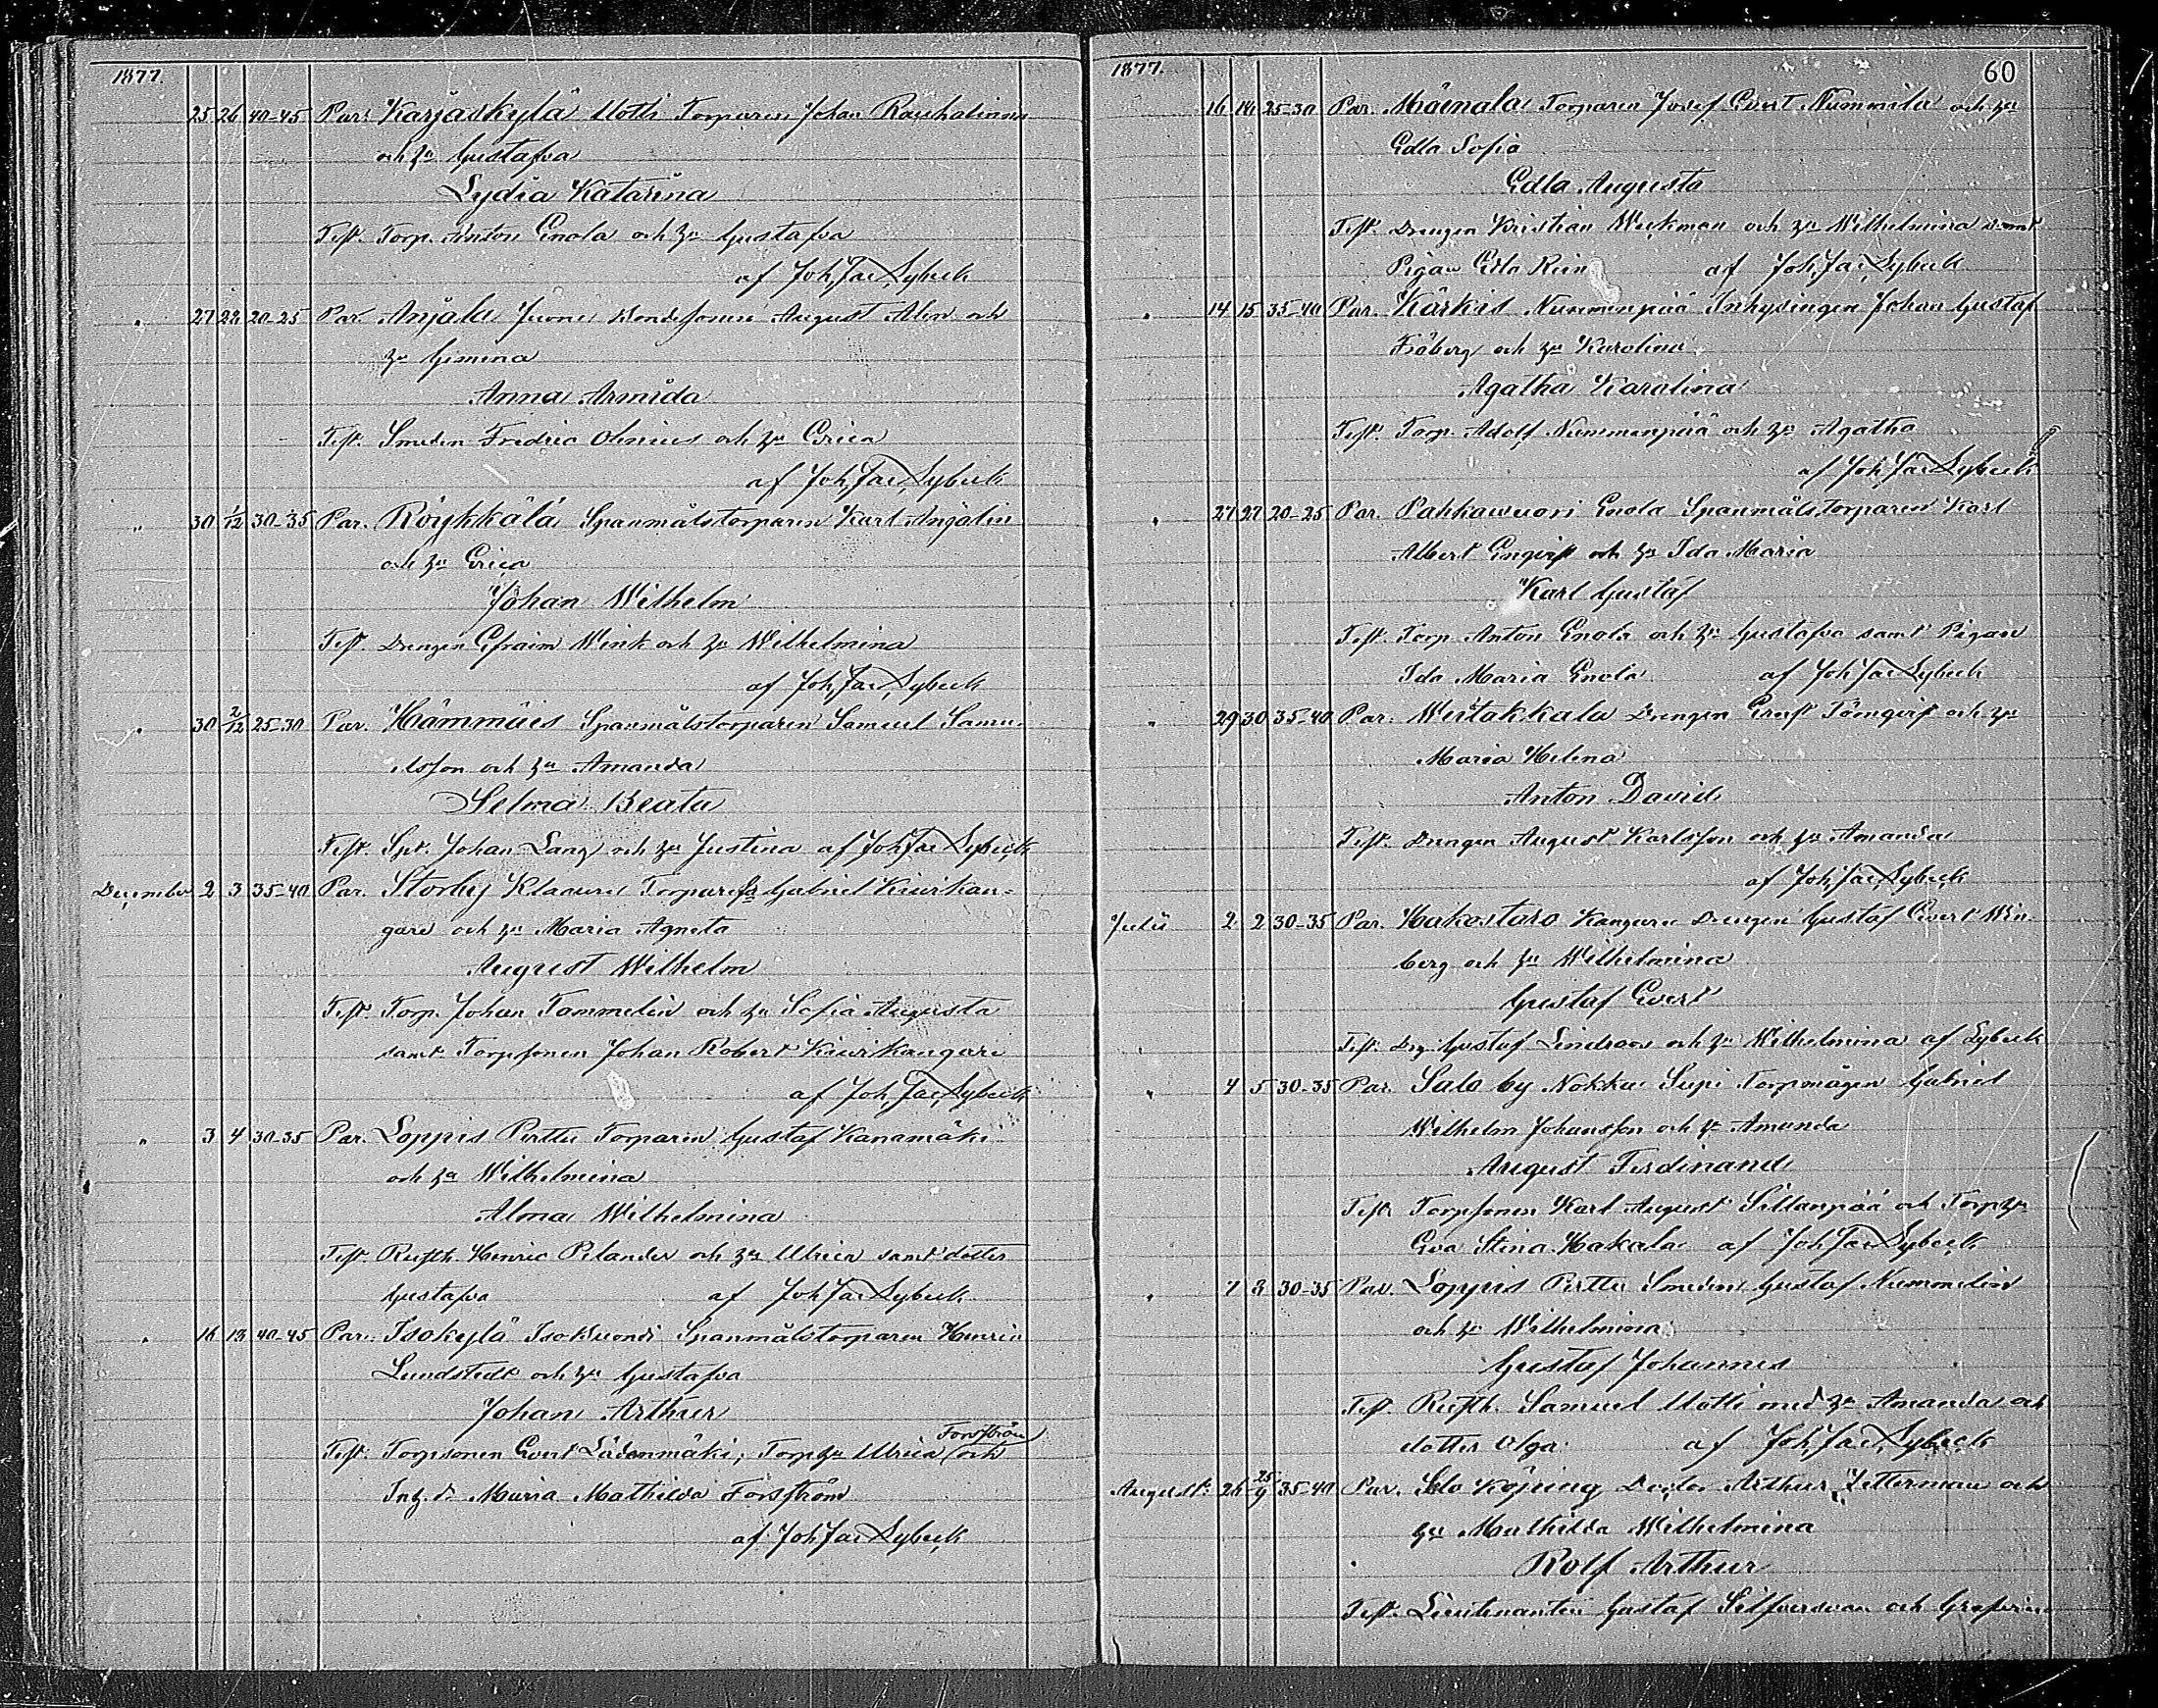 1877.
25 26 40-45 Par. Karjaskylä Uotti Torparen Johan Rauhalinna
och hu Gustafva
Lydia Katarina
Test. Torp. Anton Enola och hu Gustafva
af Joh. Jac. Sybeck
" 27 28 20-25 Par. Anjala Juoni Bondesonen August Alen och
hu Gemina
Anna Armida
Test. Smeden Fredric Olenius och hu Erica
af Joh. Jac. Sybeck
" 30 1/12 30-35 Par. Röykkälä Spanmålstorparen Karl Anjalin
och hu Erica
Johan Wilhelm
Test. Drengen Efraim Wink och hu Wilhelmina
af Joh. Jac. Sybeck
" 30 2/12 25-30 Par. Hämmäis Spanmålstorparen Samuel Samu-
elsson och hu Amanda
Selma Beata
Test. Spt. Johan Lang och hu Justina af Joh. Jac. Sybeck
December 2 3 35-40 Par. Storby Klaaura Gabriel Kiwikan-
gare och hu Maria Agneta
August Wilhelm
Test. Torp. Johan Tammelin och hu Sofia Augusta
samt Torpsonen Johan Robert Kiwikangare
af Joh. Jac. Sybeck
" 3 4 30-35 Par. Loppis Pirttu Torparen Gustaf Kanamäki
och hu Wilhelmina
Alma Wilhelmina
Test. Rusth. Henric Pelander och hu Ulrica samt dotter
Gustafva af Joh. Jac. Sybeck
" 16 18 40-45 Par. Isokylä Isosuondi Spanmålstorparen Henric
Lundstedt och hu Gustafva
Johan Arthur
Forsström
Test. Torpsonen Evert Lådenmäki, Torphu Ulrica och
Inh. d. Maria Mathilda Forsström
af Joh. Jac. Sybeck
1877. 60
16 18 25-30 Par. Moinala Torparen Josef Evert Nummila och hu
Edla Sofia
Edla Augusta
Test. Drengen Kristian Weckman och hu Wilhelmina samt
Pigan Edla Rein af Joh. Jac. Sybeck
" 14 15 35-40 Par. Kärkis Nummenpää Inhysingen Johan Gustaf
Fröberg och hu Karolina
Agatha Karolina
Test. Torp. Adolf Nummenpää och hu Agatha
af Joh. Jac. Sybeck
" 27 27 20-25 Par. Pahkawuori Enola Spanmålstorparen Karl
Albert Engvist och hu Ida Maria
Karl Gustaf
Test. Torp. Anton Enola och hu Gustafva samt Pigan
Ida Maria Enola af Joh. Jac. Sybeck
" 29 30 35-40 Par. Wiitakkala Drengen Ernst Törnqvist och hu
Maria Helena
Anton David
Test. Drengen August Karlsson och hu Amanda
af Joh. Jac. Sybeck
Julii 2 2 30-35 Par. Hakostaro Kangare Drengen Gustaf Evert Win-
berg och hu Wilhelmina
Gustaf Evert
Test. Drg. Gustaf Lindroos och hu Wilhelmina af Sybeck
" 4 5 30-35 Par. Salo by Nokka Sepi Torpmågen Gabriel
Wilhelm Johansson och hu Amanda
August Ferdinand
Test. Torpsonen Karl August Sillanpää och Torphu
Eva Stina Hakala af Joh. Jac. Sybeck
" 7 8 30-35 Par. Loppis Pirttu Smeden Gustaf Nummelin
och hu Wilhelmina
Gustaf Johannes
Test. Rusth. Samuel Uotti med hu Amanda och
dotter Olga af Joh. Jac. Sybeck
Augusti 26 25/9 35-40 Par. Salo Köping Doctor Arthur Zetterman och
hu Mathilda Wilhelmina
Rolf Arthur
Test. Lieutenanten Gustaf Silfversvan och Grefvin